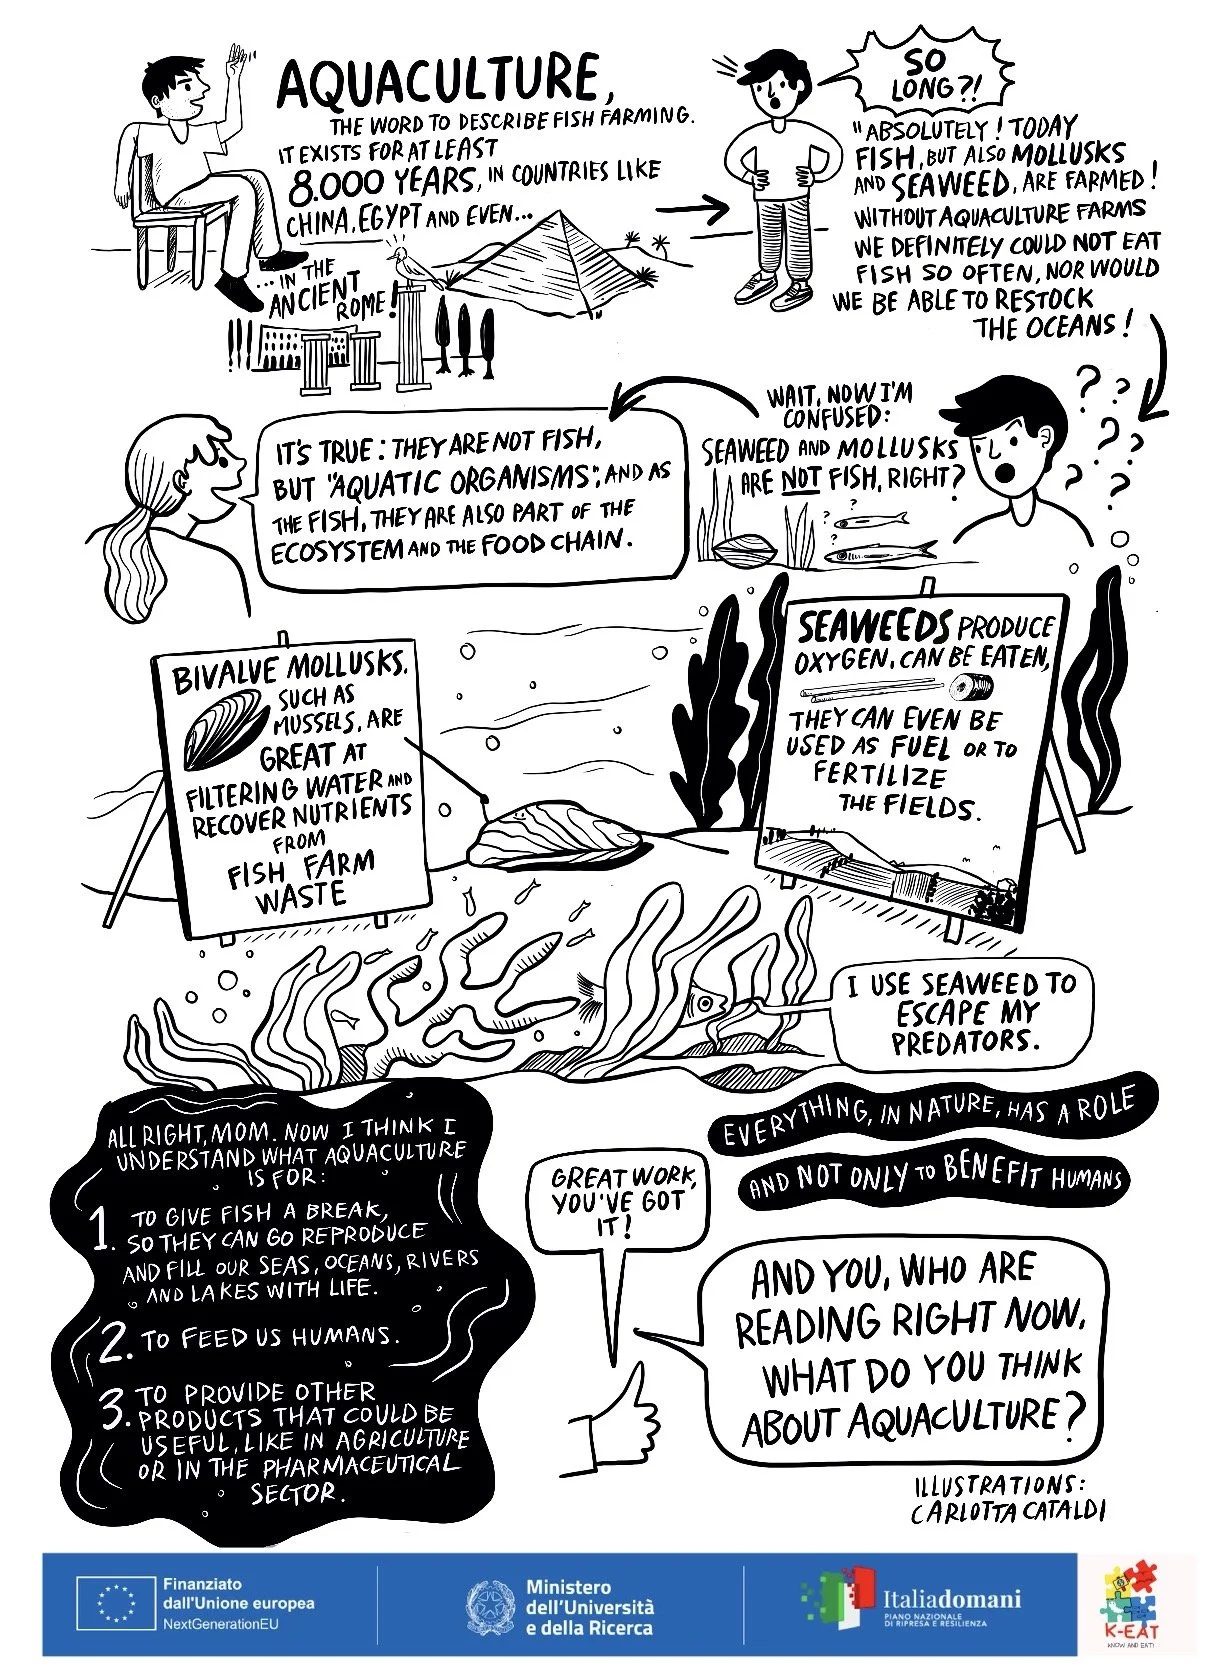 AQUACULTURE,
THE WORD TO DESCRIBE FISH FARMING.
IT EXISTS FOR AT LEAST
8.000 YEARS, IN COUNTRIES LIKE
CHINA, EGYPT AND EVEN...
...IN THE
ANCIENT
ROME!
SO
LONG?!
"ABSOLUTELY! TODAY
FISH, BUT ALSO MOLLUSKS
AND SEAWEED, ARE FARMED!
WITHOUT AQUACULTURE FARMS
WE DEFINITELY COULD NOT EAT
FISH SO OFTEN, NOR WOULD
WE BE ABLE TO RESTOCK
THE OCEANS!
WAIT, NOW I'M
CONFUSED:
SEAWEED AND MOLLUSKS
ARE NOT FISH, RIGHT?
? ? ? ? ? ?
? ?
IT'S TRUE: THEY ARE NOT FISH,
BUT "AQUATIC ORGANISMS", AND AS
THE FISH, THEY ARE ALSO PART OF THE
ECOSYSTEM AND THE FOOD CHAIN.
BIVALVE MOLLUSKS,
SUCH AS
MUSSELS, ARE
GREAT AT
FILTERING WATER AND
RECOVER NUTRIENTS
FROM
FISH FARM
WASTE
SEAWEEDS PRODUCE
OXYGEN, CAN BE EATEN,
THEY CAN EVEN BE
USED AS FUEL OR TO
FERTILIZE
THE FIELDS.
I USE SEAWEED TO
ESCAPE MY
PREDATORS.
EVERYTHING, IN NATURE, HAS A ROLE
AND NOT ONLY TO BENEFIT HUMANS
ALL RIGHT, MOM. NOW I THINK I
UNDERSTAND WHAT AQUACULTURE
IS FOR:
1. TO GIVE FISH A BREAK,
SO THEY CAN GO REPRODUCE
AND FILL OUR SEAS, OCEANS, RIVERS
AND LAKES WITH LIFE.
2. TO FEED US HUMANS.
3. TO PROVIDE OTHER
PRODUCTS THAT COULD BE
USEFUL, LIKE IN AGRICULTURE
OR IN THE PHARMACEUTICAL
SECTOR.
GREAT WORK,
YOU'VE GOT
IT!
AND YOU, WHO ARE
READING RIGHT NOW,
WHAT DO YOU THINK
ABOUT AQUACULTURE?
ILLUSTRATIONS:
CARLOTTA CATALDI
Finanziato
dall'Unione europea
NextGenerationEU
Ministero
dell'Università
e della Ricerca
Italiadomani
PIANO NAZIONALE
DI RIPRESA E RESILIENZA
K-EAT
KNOW AND EAT!